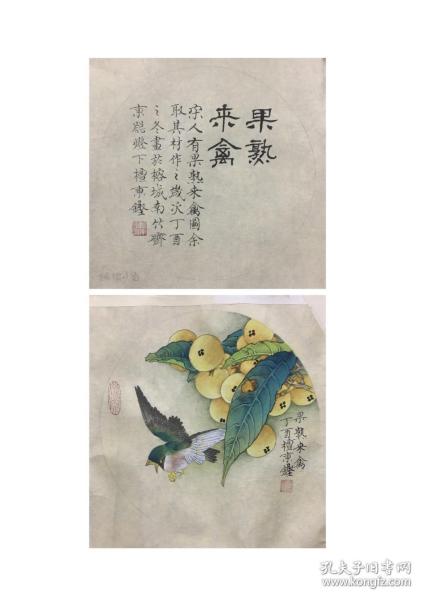 果熟
来禽
宋人有果熟来禽圖余
取其材作之歲次丁酉
之冬畫於榕城南竹齋
東聪燈下檀東鏗
果熟来禽
丁酉檀東鏗
孔夫子旧书网
www.kongfz.com